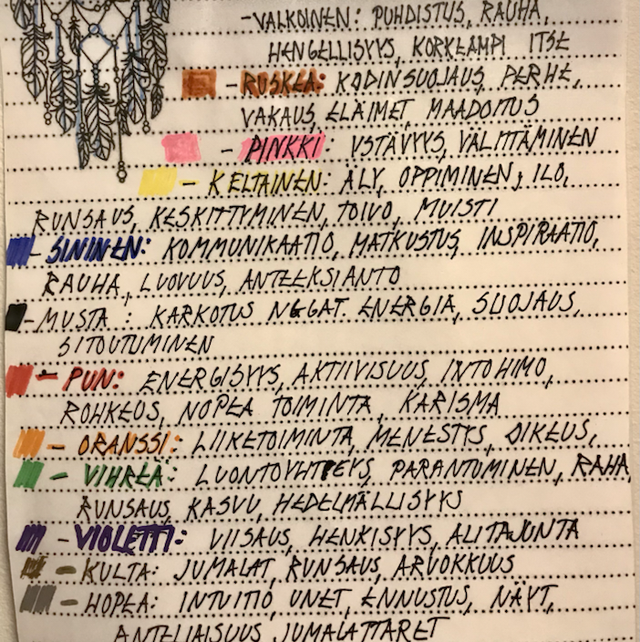 -VALKOINEN: PUHDISTUS, RAUHA,
HENGELLISYYS, KORKEAMPI ITSE
- RUSKEA: KODINSUOJAUS, PERHE,
VAKAUS, ELÄIMET, MAADOITUS
- PINKKI: YSTÄVYYS, VÄLITTÄMINEN
- KELTAINEN: ÄLY, OPPIMINEN, ILO,
RUNSAUS, KESKITTYMINEN, TOIVO, MUISTI
- SININEN: KOMMUNIKAATIO, MATKUSTUS, INSPIRAATIO,
RAUHA, LUOVUUS, ANTEEKSIANTO
-MUSTA: KARKOTUS NEGAT. ENERGIA, SUOJAUS,
SITOUTUMINEN
- PUN: ENERGISYYS, AKTIIVISUUS, INTOHIMO,
ROHKEUS, NOPEA TOIMINTA, KARISMA
- ORANSSI: LIIKETOIMINTA, MENESTYS, OIKEUS,
- VIHREÄ: LUONTOYHTEYS, PARANTUMINEN, RAHA,
RUNSAUS, KASVU, HEDELMÄLLISYYS
- VIOLETTI: VIISAUS, HENKISYYS, ALITAJUNTA
- KULTA: JUMALAT, RUNSAUS, ARVOKKUUS
- HOPEA: INTUITIO, UNET, ENNUSTUS, NÄYT,
ANTELIAISUUS JUMALATTARET